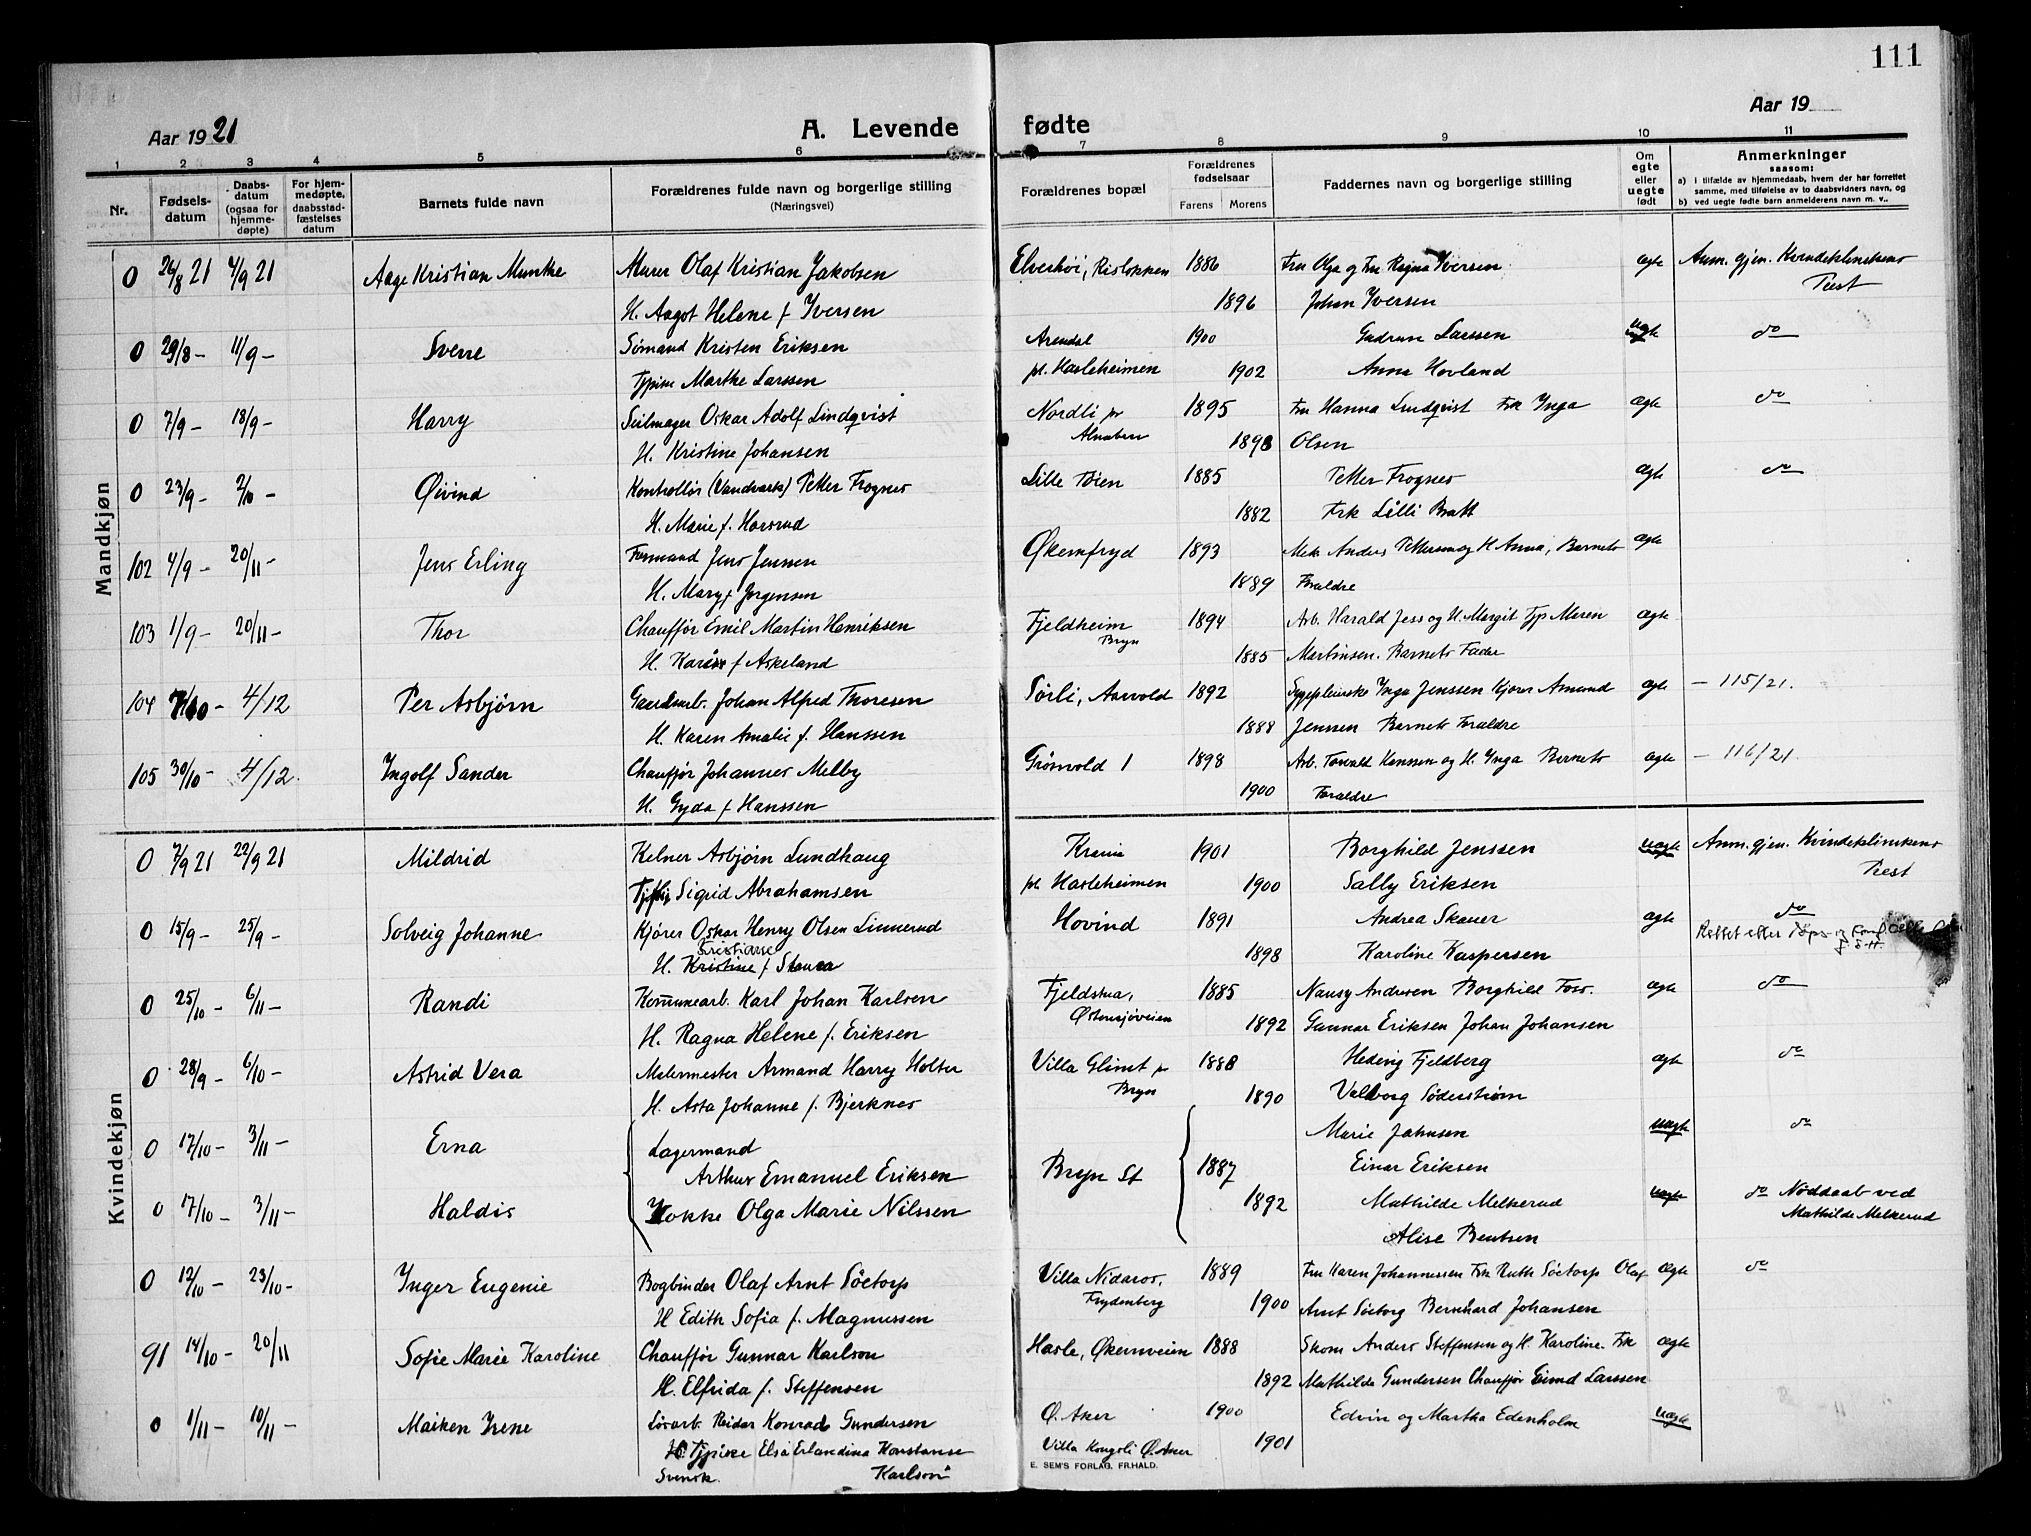 111
Aar 1921
A. Levende fødte
Aar 19
1 2 3 4 5 6 7 8 9 10 11
Nr. Fødselsdatum Daabsdatum (ogsaa for hjemmedøpte) For hjemmedøpte, daabsstadfæstelses datum Barnets fulde navn Forældrenes fulde navn og borgerlige stilling (Næringsvei) Forældrenes bopæl Forældrenes fødselsaar Farens Morens Faddernes navn og borgerlige stilling Om egte eller uegte født Anmerkninger saasom:
a) i tilfælde av hjemmedaab, hvem der har forrettet samme, med tilføielse av to daabsvidners navn, og
b) ved uegte fødte barn anmelderens navn m. v..
Mandkjøn
0 26/8 21 4/9 21 Aage Kristian Munthe Murer Olaf Kristian Jakobsen Elverhöi, Risløkken 1886 Fru Olga og Fru Ragna Iversen ægte Anm. gjen. Kvindeklinikens
H. Aagot Helene f Iversen 1896 Johan Iversen Prest
0 29/8 - 11/9 - Sverre Sømand Kristen Eriksen Arendal 1900 Gudrun Larssen uægte do
Typiske Marthe Larssen pl. Hasleheimen 1902 Anna Hovland
0 7/9 - 18/9 - Harry Seilmager Oskar Adolf Lindqvist Nordli pr 1895 Fru Hanna Lindqvist Frk Ynga ægte do
H. Kristine Johansen Alnabru 1893 Olsen
0 23/9 - 2/10 - Øivind Kontrollør (Vandverk) Petter Frognes Lille Tøien 1885 Petter Frognes ægte do
H. Marie f. Horsrud 1882 Frk Lilli Bratt
102 4/9 - 20/11 - Jens Erling Formand Jens Jensen Økernfryd 1893 Mek Anders Pettersen og H Anna, Barnets ægte
H. Mary f Jørgensen 1889 Forældre
103 1/9 - 20/11 - Thor Chauffør Emil Martin Henriksen Fjeldheim 1894 Arb. Harald Jess og H. Margit Typ Maren ægte
H. Karin f Askeland Bryn 1885 Martinsen. Barnets Fader
104 7/10 - 4/12 Per Asbjørn Gaardsarb. Johan Alfred Thoresen Sørli, Aarvold 1892 Sygepleierske Ynga Jenssen Kjører Amund ægte - 115/21.
H. Karen Amalie f. Hanssen 1888 Jensen Barnets Forældre
105 30/10 - 4/12. Ingolf Sander Chauffør Johannes Melby Grønvold 1 1898 Arb. Torvald Hanssen og H. Ynga Barnets ægte - 116/21.
H. Gyda f Hanssen 1900 Forældre
Kvindekjøn
0 7/9 21 22/9 21 Mildrid Kelner Asbjørn Lundhaug Krania 1901 Borghild Jenssen uægte Anm. gjen. Kvindeklinikens
Sigrid Abrahamsen pl. Hasleheimen 1900 Sally Eriksen Prest
0 15/9 - 25/9 - Solveig Johanne Kjører Oskar Henry Olsen Linnerud Hovind 1891 Andrea Skauer ægte do
Kristianse Rettet efter
H. Kristine f 1898 Karoline Kaspersen
0 25/10 - 6/11 - Randi Kommunearb. Karl Johan Karlsen Fjeldstua, 1885 Nansy Andresen Borghild Foss. ægte do
H. Ragna Helene f. Eriksen Østensjøveien 1892 Gunnar Eriksen Johan Johansen
0 28/9 - 6/10 - Astrid Vera Malermester Armand Harry Holter Villa Glimt pr 1888 Hedvig Fjeldberg ægte do
H. Asta Johanne f. Bjerknes Bryn 1890 Valborg Söderstrøm
0 17/10 - 3/11 - Erna Lagermand Marie Jahnsen uægte do
Arthur Emanuel Eriksen Bryn St 1887 Einar Eriksen
0 17/10 - 3/11 - Haldis Kokke Olga Marie Nilssen 1892 Mathilde Melkerud uægte do Nøddaab ved
Mathilde Melkerud
Alise Bentsen
0 12/10 - 23/10 - Ynger Eugenie Bogbinder Olaf Arnt Söetorp Villa Nidaros, 1889 Fru Karen Johannessen Frk Ruth Söetorp Olaf ægte do
H Edith Sofia f. Magnussen Frydenberg 1900 Arnt Söetorg Bernhard Johansen
91 14/10 - 20/11 Sofie Marie Karoline Chauffør Gunnar Karlson Hasle, Økernveien 1888 Skom Anders Steffensen og H. Karoline. Frk ægte
H. Elfrida f. Steffensen 1892 Mathilde Gundersen Chauffør Larssen
0 1/11 - 10/11 - Maiken Irene Reidar Konrad Gundersen Ø. Aker 1900 Edvin og Martha Edenholm uægte
Typiske Elsa Erlandina Konstanse Villa Kongsli Ø. Aker 1901
Svensk. Karlson
E. SEM'S FORLAG, FR.HALD.